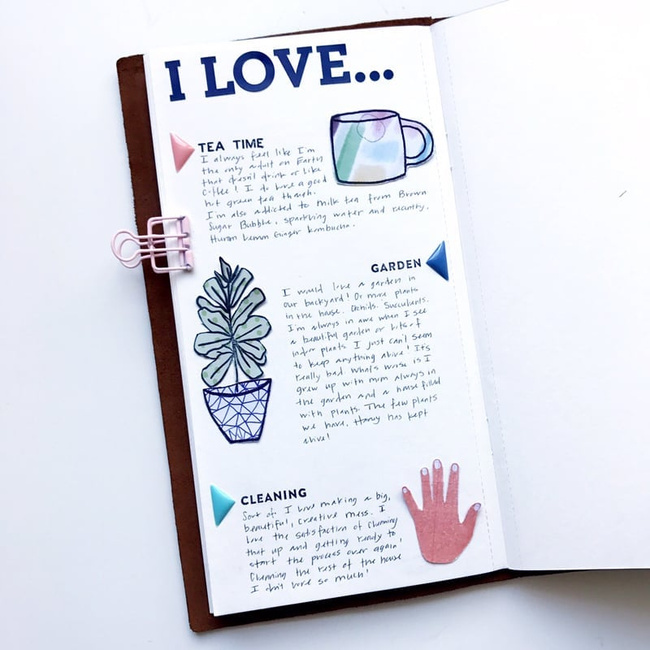 I LOVE...
TEA TIME
I always feel like I'm
the only adult on Earth
that doesn't drink or like
coffee! I do love a good
hot green tea though.
I'm also addicted to milk tea from Brown
Sugar Bubble, sparkling water and recently,
Human Lemon Ginger kombucha.
GARDEN
I would love a garden in
our backyard! Or more plants
in the house. Orchids. Succulents.
I'm always in awe when I see
a beautiful garden or lots of
plants I just can't seem
to keep anything alive! It's
really bad. What's worse is I
grew up with mom always in
the garden and a house filled
with plants. The few plants
we have, has kept
alive!
CLEANING
Sort of. I love making a big,
beautiful, creative mess. I
love the satisfaction of cleaning
that up and getting ready to
start the process over again!
Cleaning the rest of the house
I don't love so much!